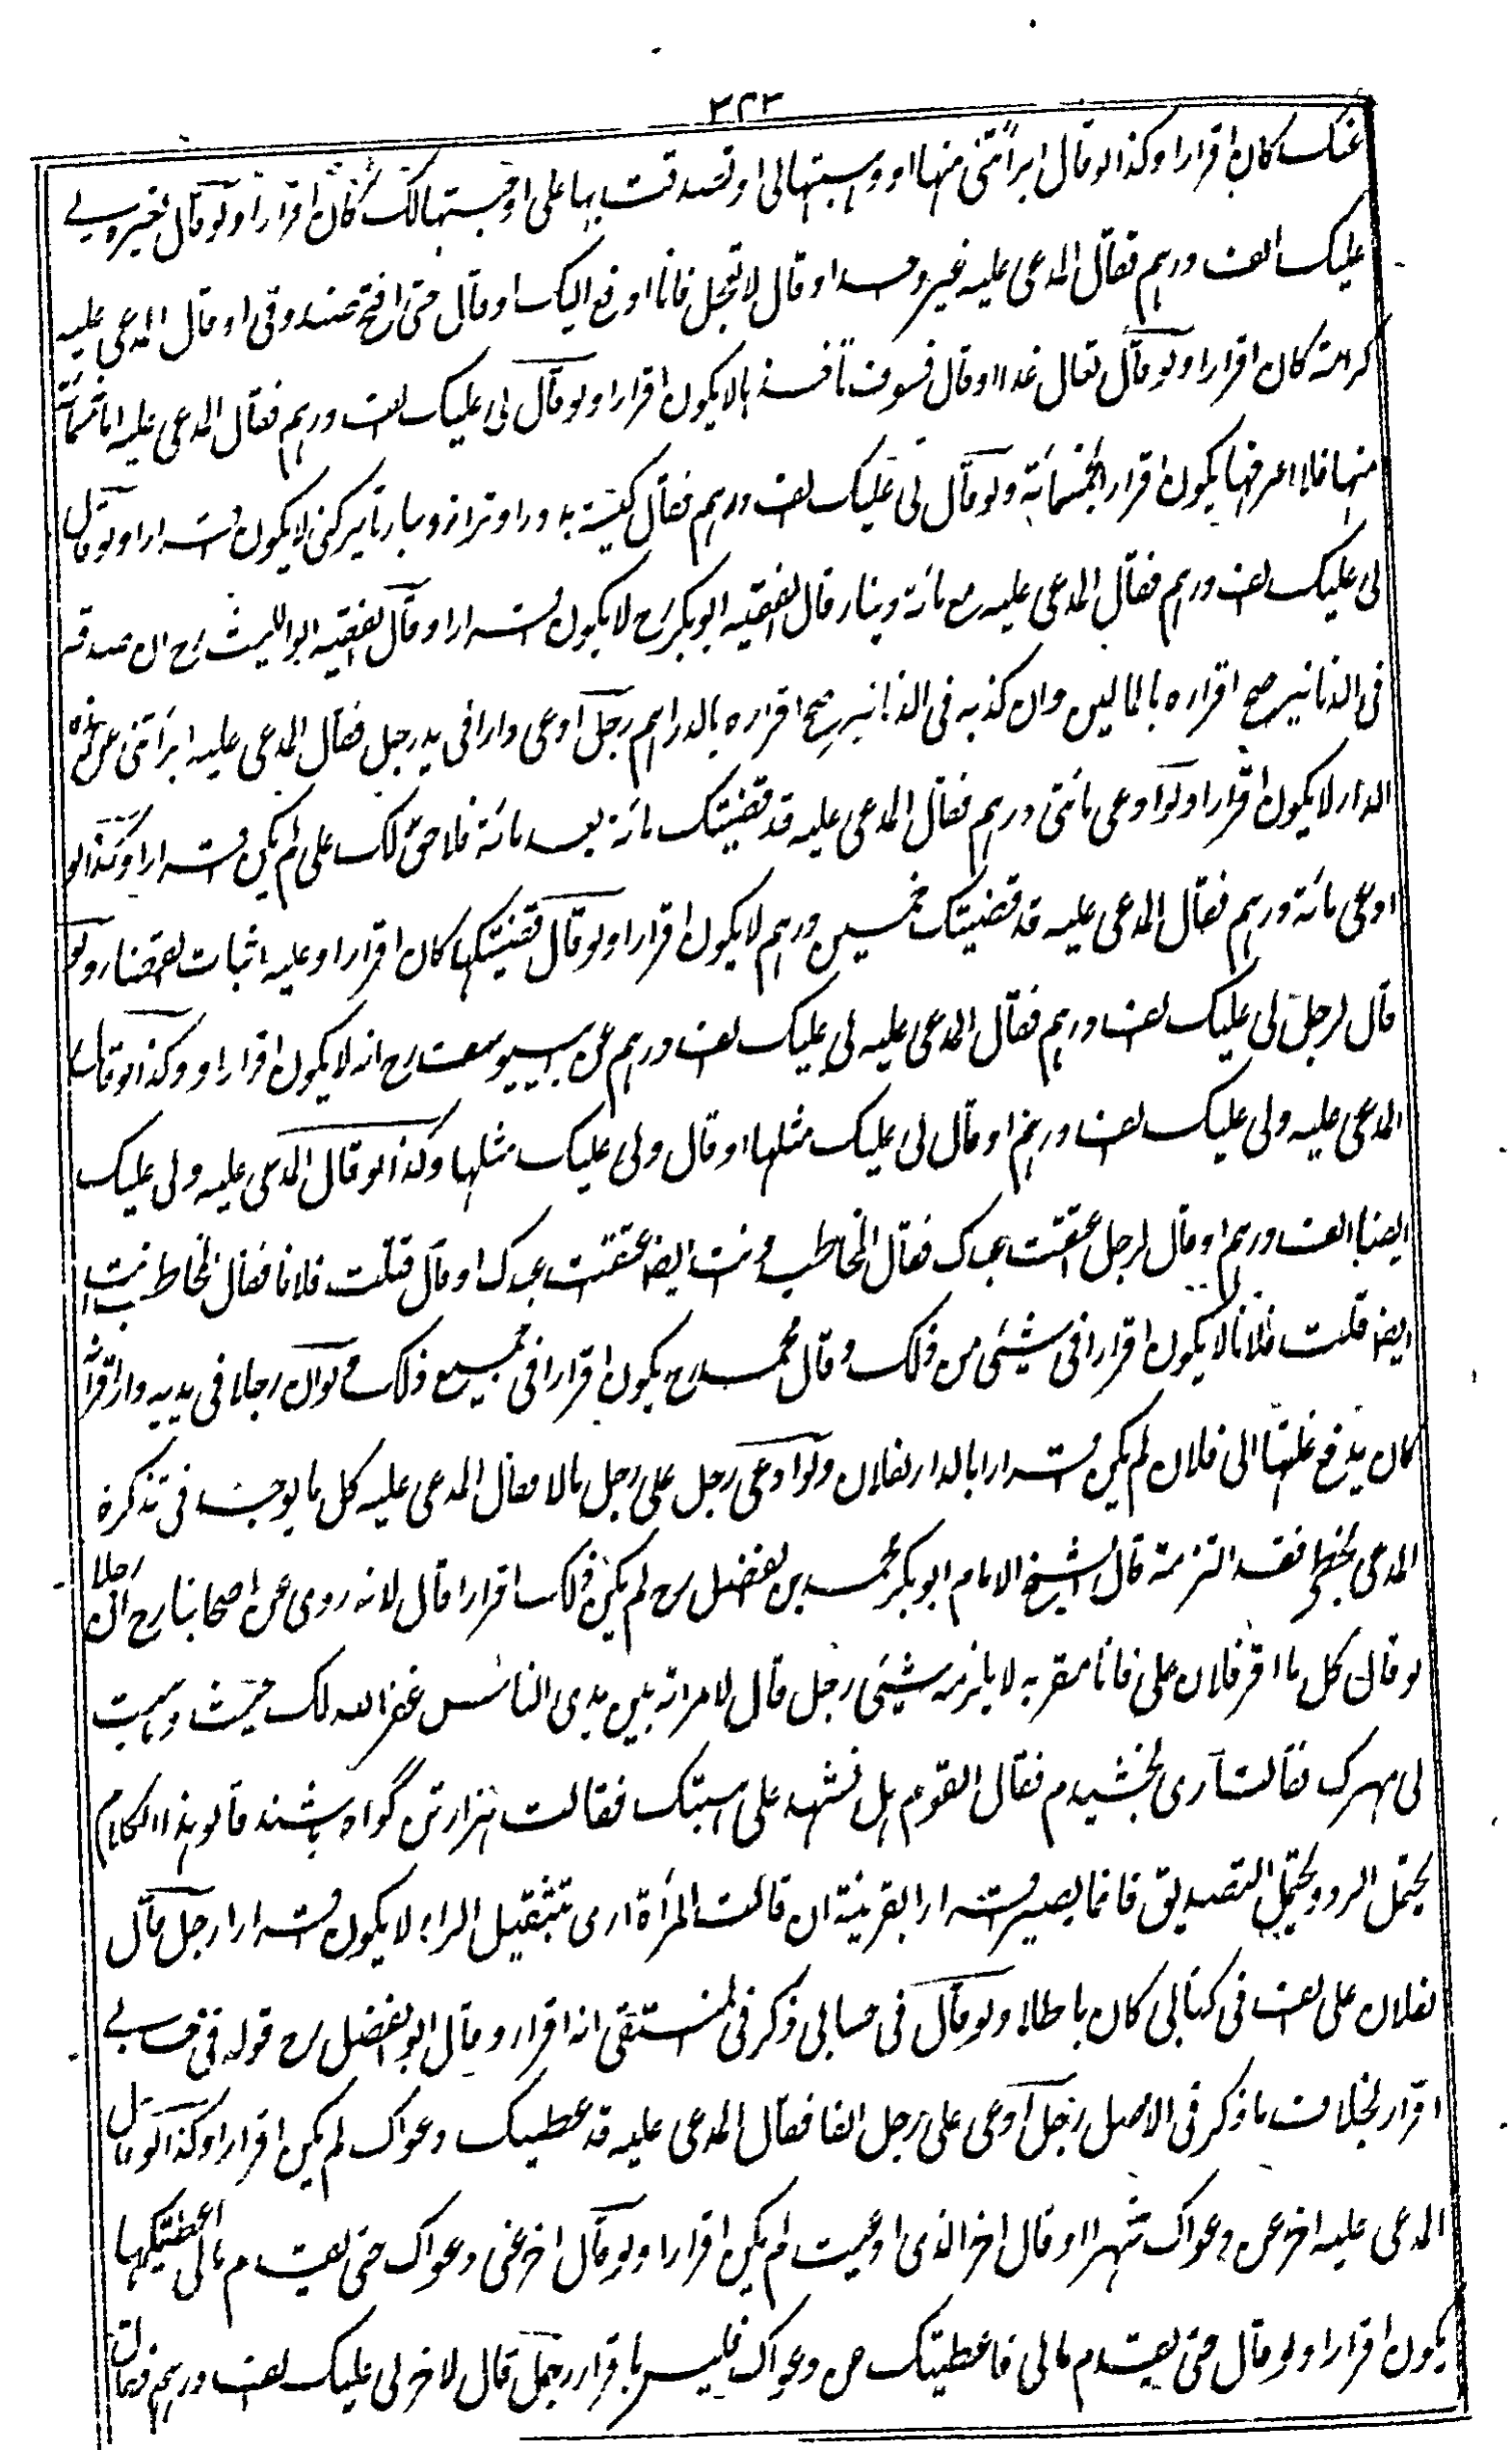 ٣٢٣
عنك كان اقرارا وكذا لو قال ابرأتنى منها او وهبتها لى او تصدقت بها على او احتسبتها لك كان اقرارا ولو قال لغيره لى
عليك الف درهم فقال المدعى عليه غير وحد او قال لا تعجل فانا ادفع اليك او قال حتى افتح صندوقى او قال المدعى عليه
كرامة كان اقرارا ولو قال تعال غدا او قال فسوف تاخذها لا يكون اقرارا ولو قال لى عليك الف درهم فقال المدعى عليه اما خمسمائة
منها فلا اعرفها يكون اقرارا بخمسمائة ولو قال لى عليك الف درهم فقال كيسه بدوز او ترازو بيار تا بركنى لا يكون اقرارا ولو قال
لى عليك الف درهم فقال المدعى عليه مع مائة دينار قال الفقيه ابو بكر رح لا يكون اقرارا وقال الفقيه ابو الليث رح ان صدقه
فى الدنانير صح اقراره بالمالين وان كذبه فى الدنانير صح اقراره بالدراهم رجل ادعى دارا فى يد رجل فقال المدعى عليه ابرأتنى عن هذه
الدار لا يكون اقرارا ولو ادعى مائتى درهم فقال المدعى عليه قد قضيتك مائة بعد مائة فلا حق لك على لم يكن اقرارا وكذا لو
ادعى مائة درهم فقال المدعى عليه قد قضيتك خمسين درهم لا يكون اقرارا ولو قال قضيتكها كان اقرارا وعليه اثبات القضاء ولو
قال لرجل لى عليك الف درهم فقال المدعى عليه لى عليك الف درهم عن ابى يوسف رح انه لا يكون اقرارا وكذا لو قال
المدعى عليه ولى عليك الف درهم او قال لى عليك مثلها او قال ولى عليك مثلها وكذا لو قال المدعى عليه ولى عليك
ايضا الف درهم او قال لرجل اعتقت عبدك فقال المخاطب وانت ايضا اعتقت عبدك او قال قتلت فلانا فقال المخاطب انت
ايضا قتلت فلانا لا يكون اقرارا فى شيئ من ذلك وقال محمد رح يكون اقرارا فى جميع ذلك ولو ان رجلا فى يديه دار اقر انه
كان يدفع غلتها الى فلان لم يكن اقرارا بالدار لفلان ولو ادعى رجل على رجل مالا فقال المدعى عليه كل ما يوجد فى تذكرة
المدعى بخطى فقد التزمته قال الشيخ الامام ابو بكر محمد بن الفضل رح لم يكن ذلك اقرارا قال لانه روى عن اصحابنا رح ان رجلا
لو قال كل ما اقر فلان على فانا مقر به لا يلزمه شيئ رجل قال لامراته بين يدى الناس غفر الله لك حيث وهبت
لى مهرك فقالت آرى بخشيدم فقال القوم هل نشهد على هبتك فقالت هزار تن گواه باشند قالوا هذا الكلام
يحتمل الرد ويحتمل التصديق فانما يصير اقرارا بالقرينة ان قالت المرأة ارى بتثقيل الراء لا يكون اقرارا رجل قال
لفلان على الف فى كتابى كان باطلا ولو قال فى حسابى ذكر فى المنتقى انه اقرار وقال ابو الفضل رح قوله فى حسابى
اقرار بخلاف ما ذكر فى الاصل رجل ادعى على رجل الفا فقال المدعى عليه قد اعطيتك دعواك لم يكن اقرارا وكذا لو قال
المدعى عليه اخر عنى دعواك شهرا او قال اخر الذى ادعيت لم يكن اقرارا ولو قال اخر عنى دعواك حتى يقدم مالى اعطيتكها
يكون اقرارا ولو قال حتى يقدم مالى فاعطيتك من دعواك فليس باقرار رجل قال لاخر لى عليك الف درهم فقال